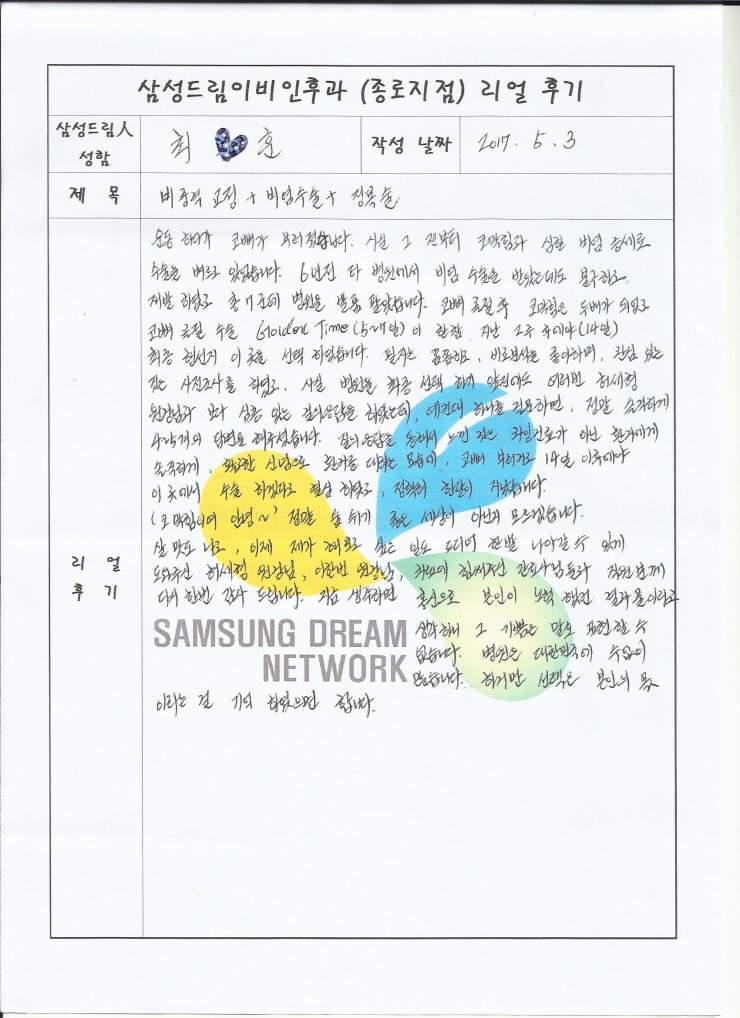 삼성드림이비인후과 (종로지점) 리얼 후기
삼성드림人
성함
최 훈
작성 날짜
2017. 5. 3
제 목
비중격 교정 + 비염수술 + 정복술
리 얼
후 기
운동 하다가 코뼈가 부러졌습니다. 사실 그 전부터 코막힘과 심한 비염 증세로
수술을 벼르고 있었습니다. 6년전 타 병원에서 비염 수술을 받았는데도 불구하고
재발 하였고 총 7군데 병원을 발품 팔았습니다. 코뼈 골절 후 코막힘은 두배가 되었고
코뼈 골절 수술 Golden Time (5~7일)이 한참 지난 2주 후에야 (14일)
최종 현선지 이 곳을 선택 하였습니다. 필자는 꼼꼼하고, 비교분석을 좋아하며, 관심 있는
것는 사전조사를 하였고, 사실 병원을 최종 선택 하기 앞전에도 여러번 허세형
원장님과 보다 심층 있는 질의응답을 하였는데, 예컨대 하나를 질문하면, 정말 솔직하게
4~5개의 답변을 해주셨습니다. 질의응답을 통해서 느낀 것은 과잉진료가 아닌 환자에게
솔직하게, 확고한 신념으로 환자를 대하는 모습에, 코뼈 부러지고 14일 이후에야
이 곳에서 수술 하겠다고 결심 하였고, 정확히 한달이 지났습니다.
'코막힘이여 안녕~' 정말 숨 쉬기 좋은 세상이 아닌지 모르겠습니다.
살 맛도 나고, 이제 제가 해보고 싶은 일도 드디어 한발 나아갈 수 있게
도와주신 허세형 원장님, 이한빈 원장님, 저희에 힘써주신 간호사님들과 직원분께
다시 한번 감사 드립니다. 지금 생각하면 본인이 노력 했던 결과물이라고
생각하니 그 기쁨은 말로 표현할 수
없습니다. 병원은 대한민국에 수없이
많습니다. 하지만 선택은 본인의 몫
이라는 걸 기억 하였으면 합니다.
SAMSUNG DREAM
NETWORK